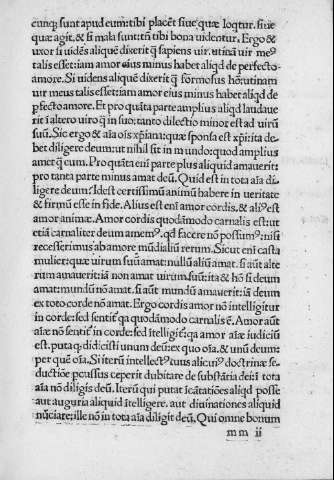 cunq; sunt apud eum: tibi placēt siue quæ loq̃tur. siue
quæ agit. & si mala sunt: tñ tibi bona uidentur. Ergo &
uxor si uidēs aliquē dixerit q̃ sapiens uir. utinā uir meꝰ
talis esset: iam amor eius minus habet aliqd de perfecto
amore. Si uidens aliquē dixerit q̃ formosus hō: utinam
uir meus talis esset: iam amor eius minus habet aliqd de
pfecto amore. Et pro quāta parte amplius aliqd laudaue
rit ī altero uiro q̃ in suo: tanto dilectio minor est ad uirū
suū. Sic ergo & aīa oīs xp̄iana: quæ sponsa est xp̄i: ita de-
bet diligere deum: ut nihil sit in mundo: quod amplius
amet q̃ eum. Pro quāta enī parte plus aliquid amauerit:
pro tanta parte minus amat deū. Quid est in tota aīa di
ligere deum? Idest certissimū animū habere in ueritate
& firmū esse in fide. Alius est enī amor cordis. & aliꝰ est
amor animæ. Amor cordis quodāmodo carnalis est: ut
etiā carnaliter deum amemꝰ. qd facere nō possumꝰ: nisi
recesserimus ab amore mūdialiū rerum. Sicut enī casta
mulier: quæ uirum suū amat: nullū aliū amat. si aūt alte
rum amauerit: iā non amat uirum suū: ita & hō si deum
amat: mundū nō amat. si aūt mundū amauerit: iā deum
ex toto corde nō amat. Ergo cordis amor nō intelligitur
in corde: sed sentiť qa quodāmodo carnalis ē. Amor aūt
aīæ nō sentiť in corde: sed ītelligiť: qa amor aīæ iudiciū
est. puta q; didicisti unum deū: ex quo oīa. & unū deum:
per quē oīa. Si iterū intellectꝰ tuus alicuiꝰ doctrinæ se-
ductiōe pcussus ceperit dubitare de substātia dei: ī tota
aīa nō diligis deū. Iterū qui putat īcātatiōes aliqd posse
aut auguria aliquid ītelligere. aut diuinationes aliquid
nūciare: ille nō in tota aīa diligit deū. Qui omne bonum
m m ii